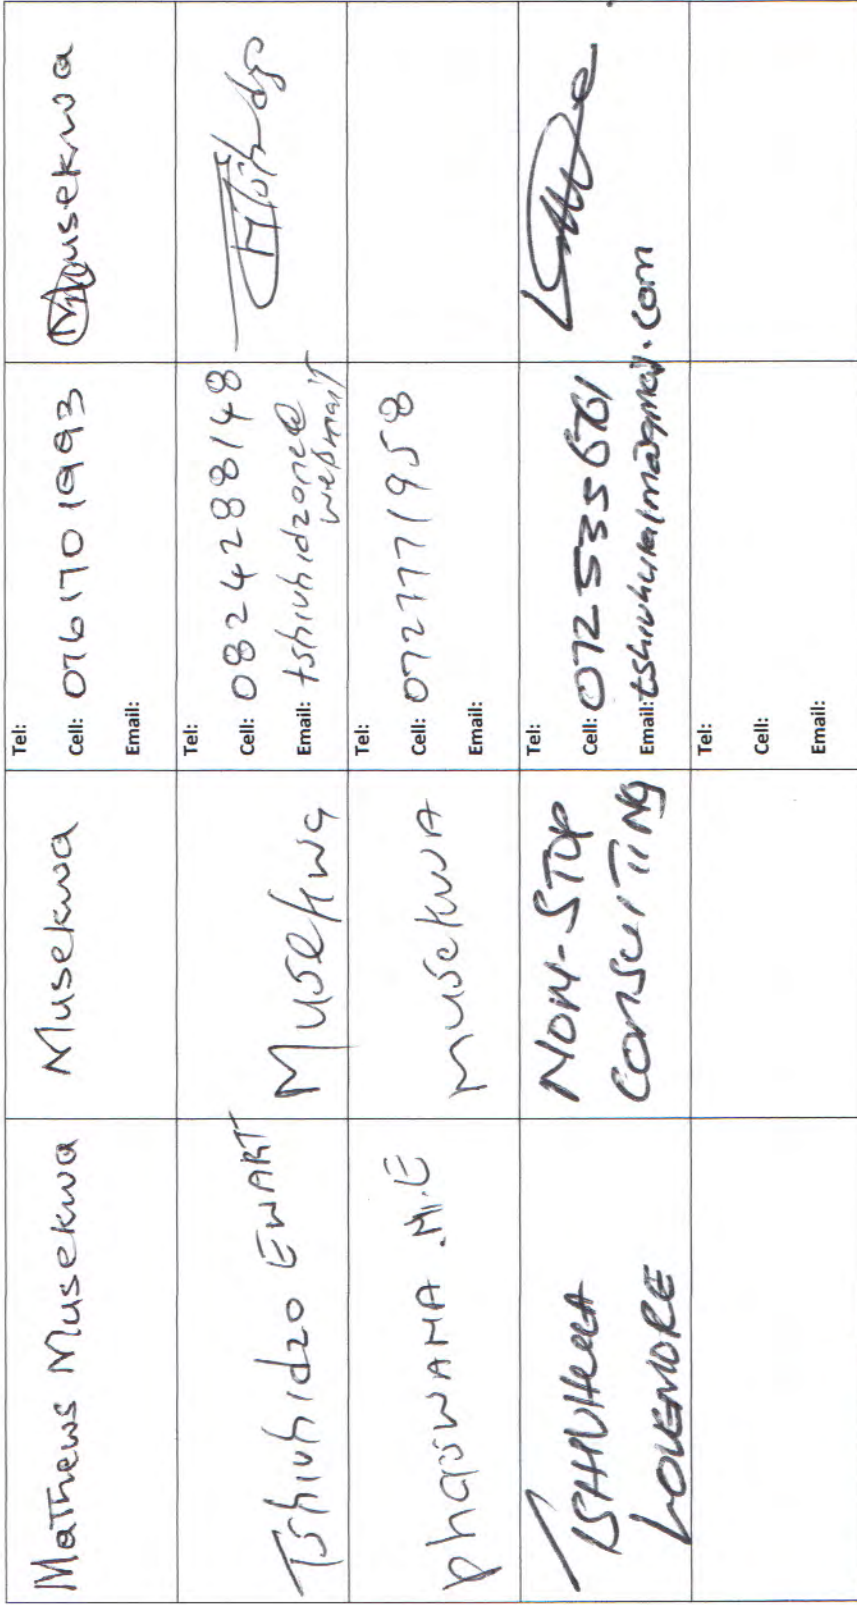 Matthews Musekwa
Musekwa
Tel:
Cell: 0761701993
Email:
Musekwa
Tshivhidzo EWART
Musekwa
Tel:
Cell: 0824288148
Email: tshivhidzone@
webmail
phaswana .M.E
musekwa
Tel:
Cell: 0727771958
Email:
TSHIVHULA
LOVEMORE
NON-STOP
CONSULTING
Tel:
Cell:
Email:
Tel:
Cell:
Email: